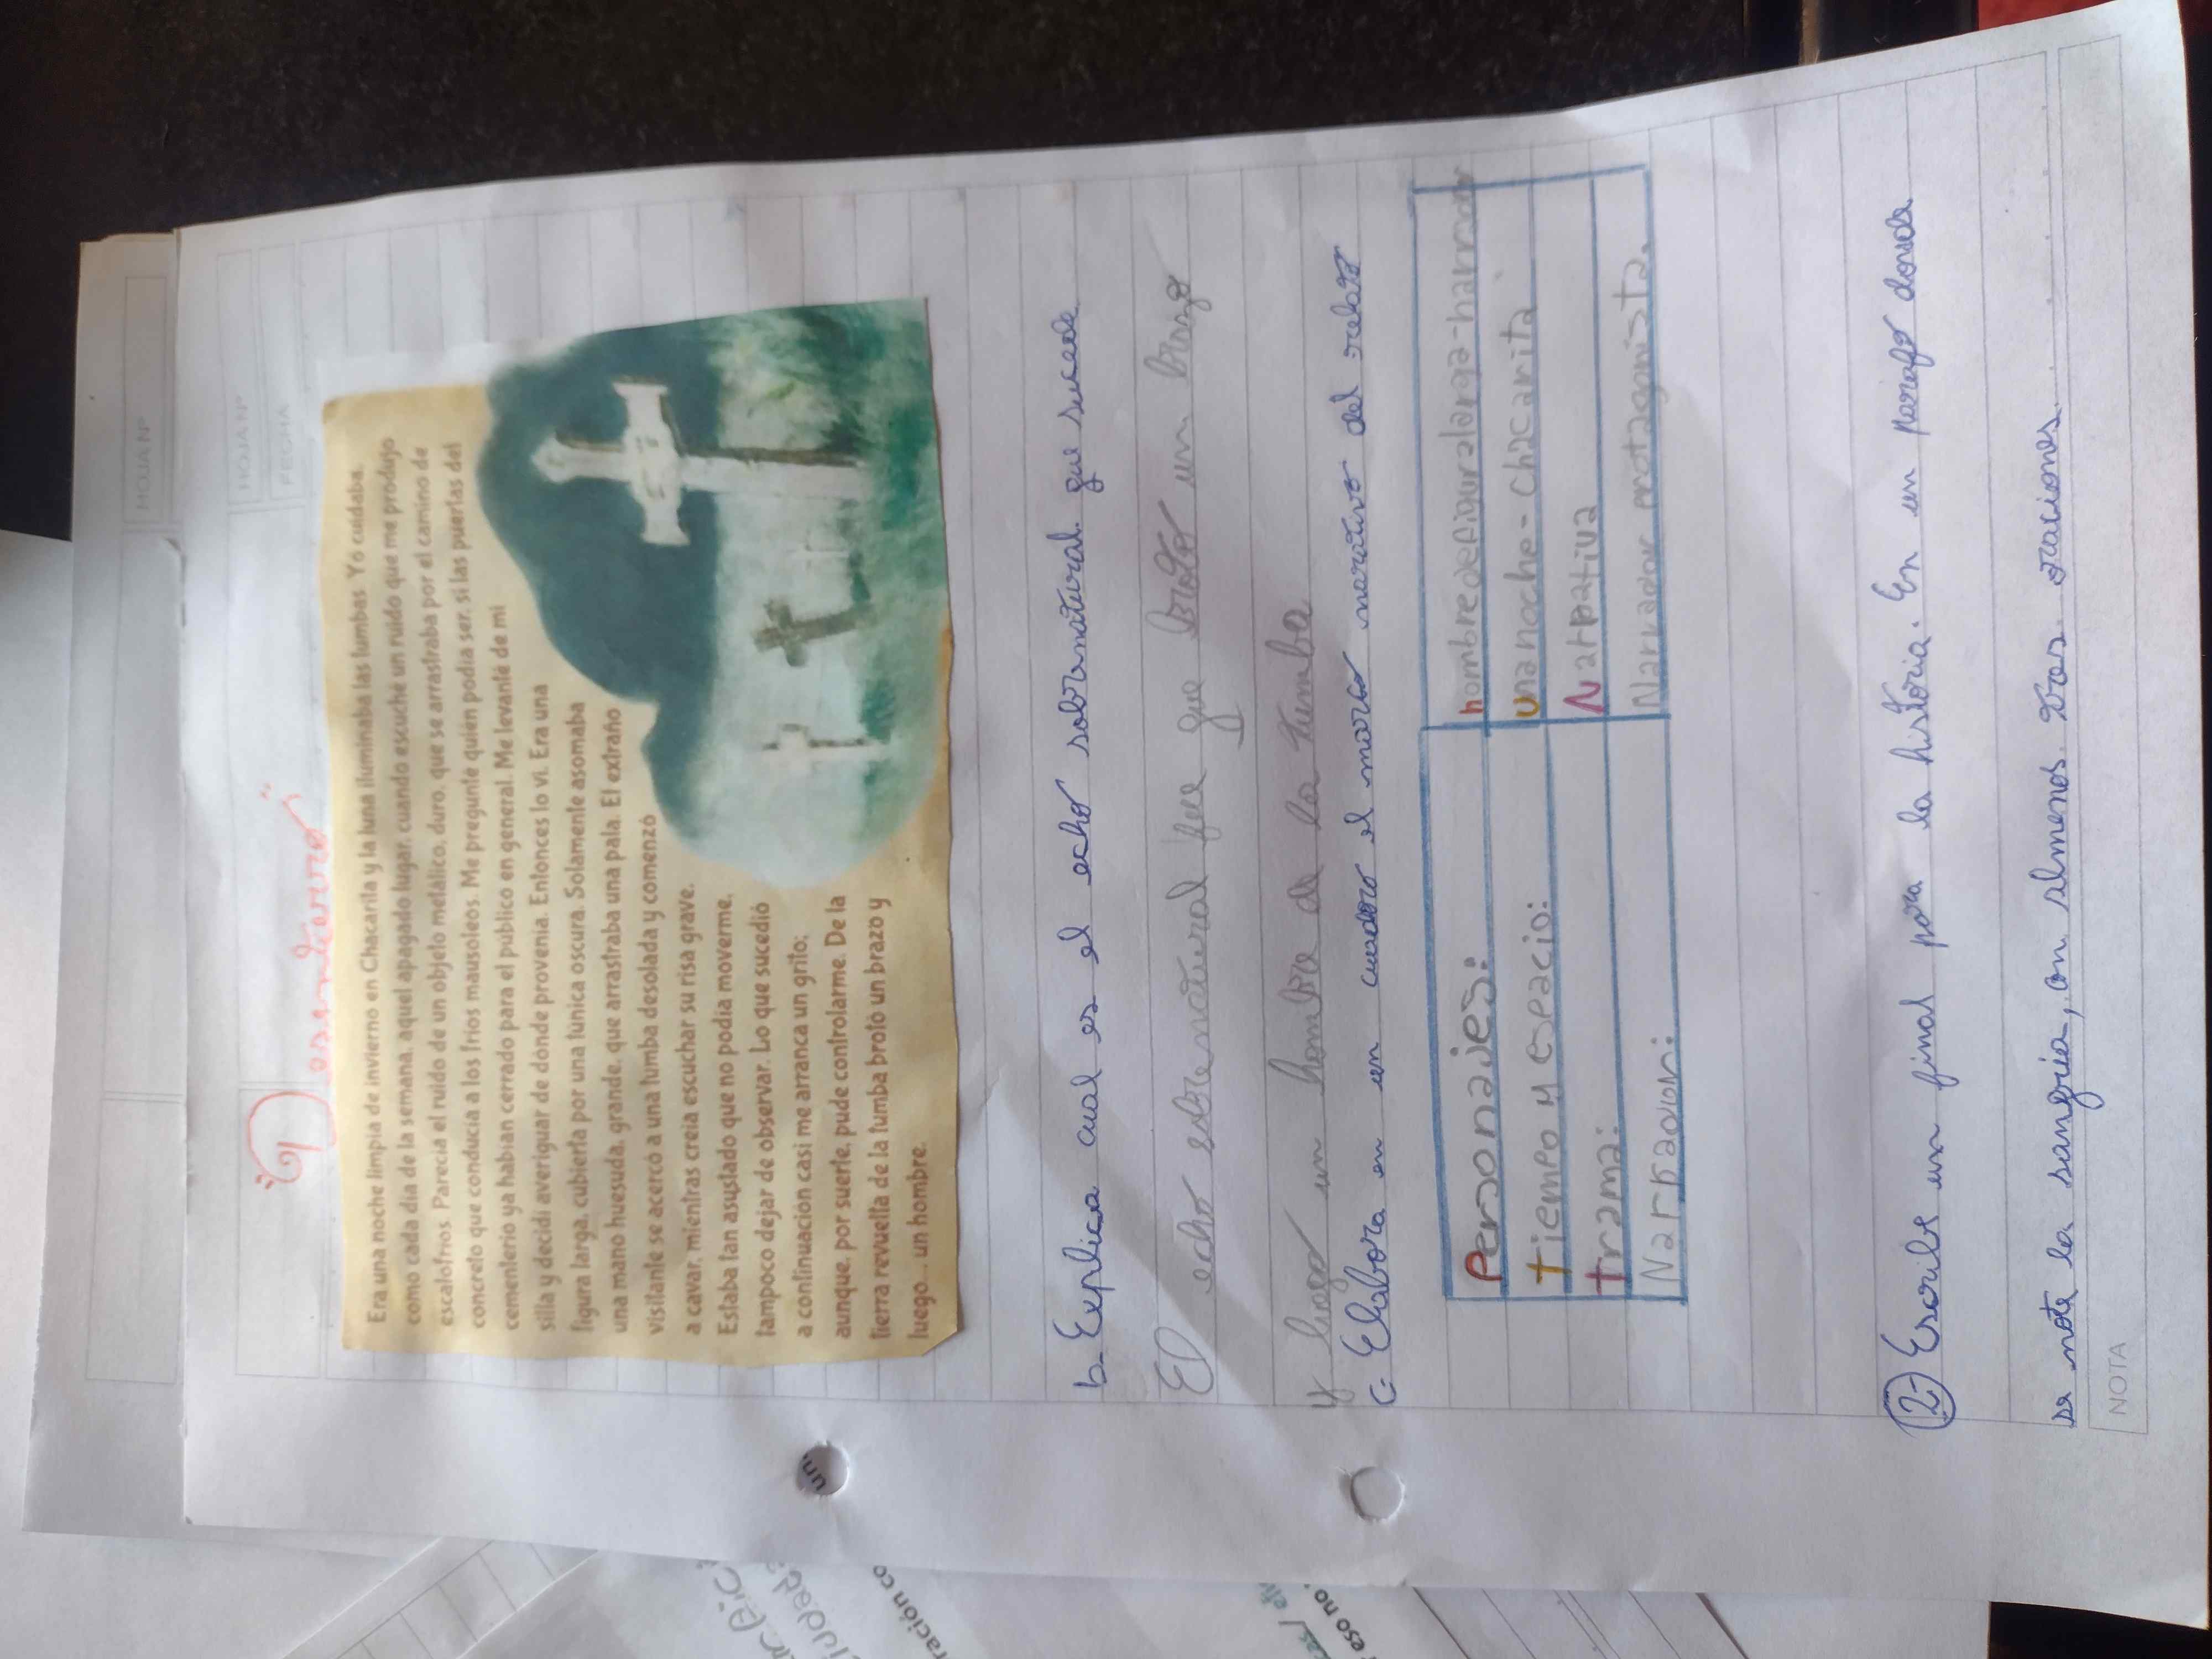 HOJA Nº
HOJA Nº
FECHA
"Desentierro"
Era una noche limpia de invierno en Chacarita y la luna iluminaba las tumbas. Yo cuidaba,
como cada día de la semana, aquel apagado lugar, cuando escuché un ruido que me produjo
escalofríos. Parecía el ruido de un objeto metálico, duro, que se arrastraba por el camino de
concreto que conducía a los fríos mausoleos. Me pregunté quién podía ser, si las puertas del
cementerio ya habían cerrado para el público en general. Me levanté de mi
silla y decidí averiguar de dónde provenía. Entonces lo vi. Era una
figura larga, cubierta por una túnica oscura. Solamente asomaba
una mano huesuda, grande, que arrastraba una pala. El extraño
visitante se acercó a una tumba desolada y comenzó
a cavar, mientras creía escuchar su risa grave.
Estaba tan asustado que no podía moverme,
tampoco dejar de observar. Lo que sucedió
a continuación casi me arranca un grito;
aunque, por suerte, pude controlarme. De la
tierra revuelta de la tumba brotó un brazo y
luego... un hombre.
b- Explica cual es el echo sobranatural que sucede
El echo sobrenatural fue que brotó un brazo
y luego un hombre de la tumba
c- Elabora en un cuadro el marco narativo del relato
Personajes: hombre de figura larga-narrador
tiempo y espacio: una noche - Chacarita
trama: Narrativa
Narrador: Narrador protagonista.
2- Escribe un final para la história. En un parafo donde
se note la sangria, con almenos tres oraciones.
NOTA
un
ración co
eso no